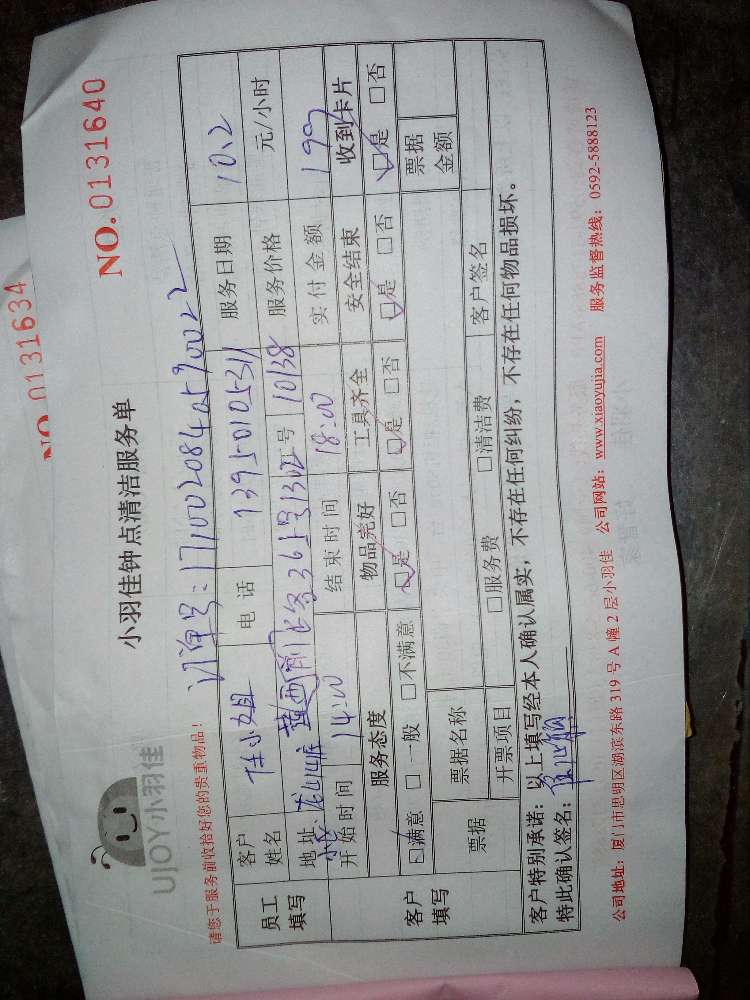 NO.0131634
UJOY小羽佳
小羽佳钟点清洁服务单
NO.0131640
请您于服务前收拾好您的贵重物品!
订单号:17100208405790022
员工填写
客户姓名 任小姐 电话 服务日期 10.2
地址 工号 10138 服务价格 元/小时
开始时间 14:00 结束时间 18:00 实付金额 199
客户填写
服务态度 物品完好 工具齐全 安全结束 收到卡片
☑满意 □一般 □不满意 ☑是 □否 ☑是 □否 ☑是 □否 ☑是 □否
票据 票据名称 票据金额
开票项目 □服务费 □清洁费 客户签名
客户特别承诺:以上填写经本人确认属实,不存在任何纠纷,不存在任何物品损坏。
特此确认签名:
公司地址:厦门市思明区湖滨东路319号A幢2层小羽佳 公司网站:www.xiaoyujia.com 服务监督热线:0592-5888123